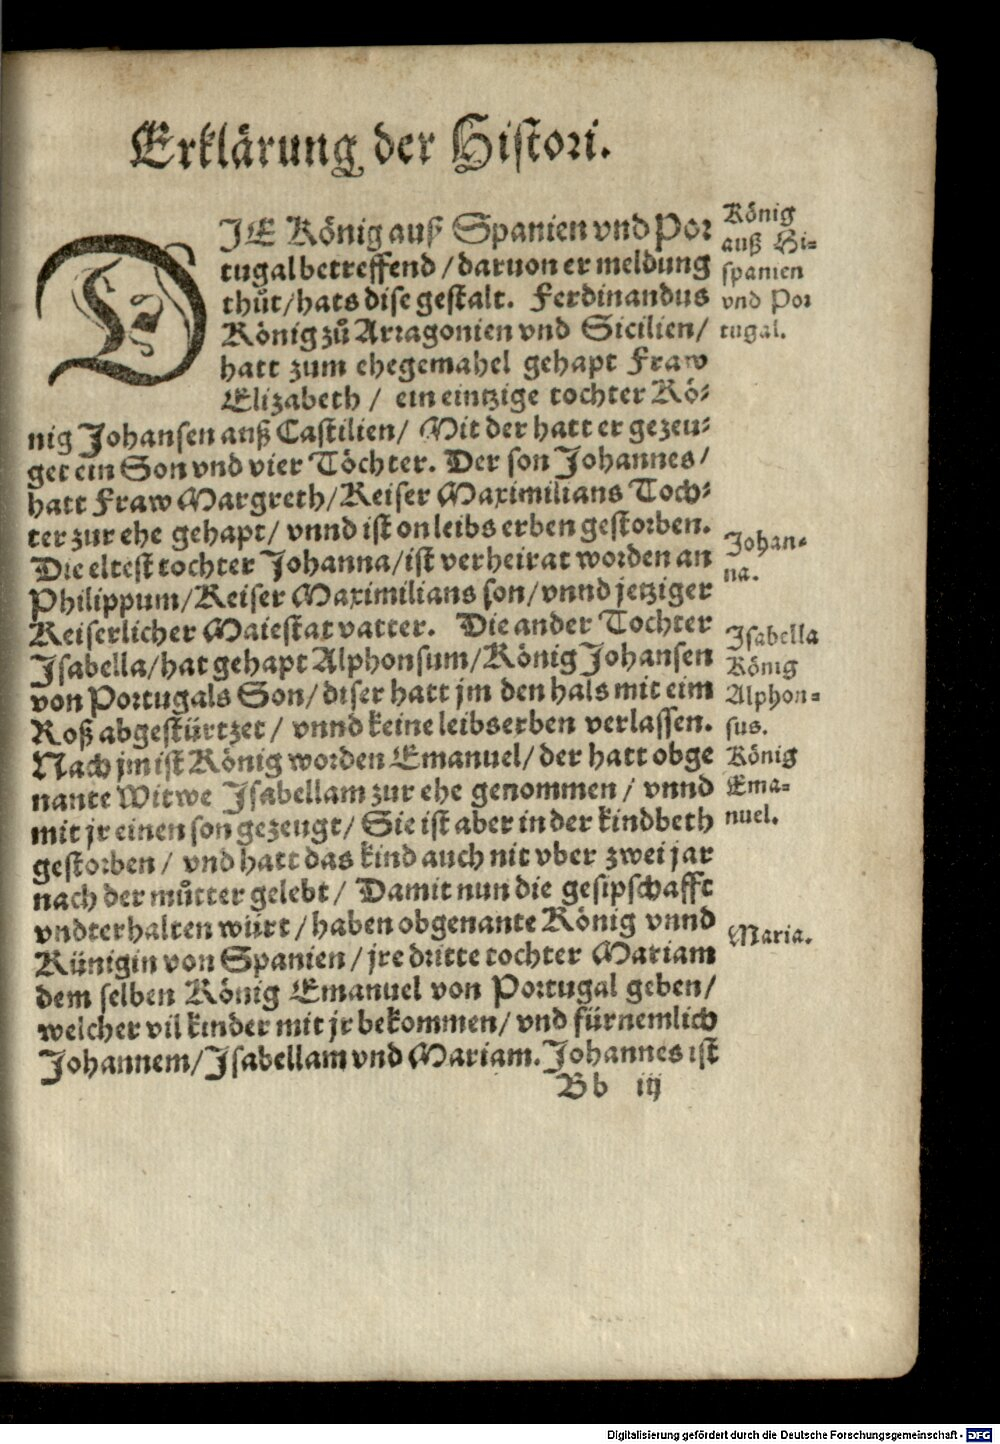 Erklärung der Histori.
DIE König auß Spanien vnd Por
tugal betreffend / daruon er meldung
thůt / hats dise gestalt. Ferdinandus
König zů Arragonien vnd Sicilien /
hatt zum ehegemahel gehapt Fraw
Elizabeth / ein eintzige tochter Kö-
nig Johansen auß Castilien / Mit der hatt er gezeu-
get ein Son vnd vier Töchter. Der son Johannes /
hatt Fraw Margreth / Keiser Maximilians Toch-
ter zur ehe gehapt / vnnd ist on leibs erben gestorben.
Die eltest tochter Johanna / ist verheirat worden an
Philippum / Keiser Maximilians son / vnnd jetziger
Keiserlicher Maiestat vatter. Die ander Tochter
Isabella / hat gehapt Alphonsum / König Johansen
von Portugals Son / diser hatt jm den hals mit eim
Roß abgestürtzet / vnnd keine leibserben verlassen.
Nach jm ist König worden Emanuel / der hatt obge
nante Witwe Isabellam zur ehe genommen / vnnd
mit jr einen son gezeugt / Sie ist aber in der kindbeth
gestorben / vnd hatt das kind auch nit vber zwei jar
nach der můtter gelebt / Damit nun die gesipschafft
vndterhalten würt / haben obgenante König vnnd
Künigin von Spanien / jre dritte tochter Mariam
dem selben König Emanuel von Portugal geben /
welcher vil kinder mit jr bekommen / vnd fürnemlich
Johannem / Isabellam vnd Mariam. Johannes ist
Bb iij
König
auß Hi-
spanien
vnd Por
tugal.
Johan-
na.
Isabella
König
Alphon-
sus.
König
Ema-
nuel.
Maria.
Digitalisierung gefördert durch die Deutsche Forschungsgemeinschaft - DFG